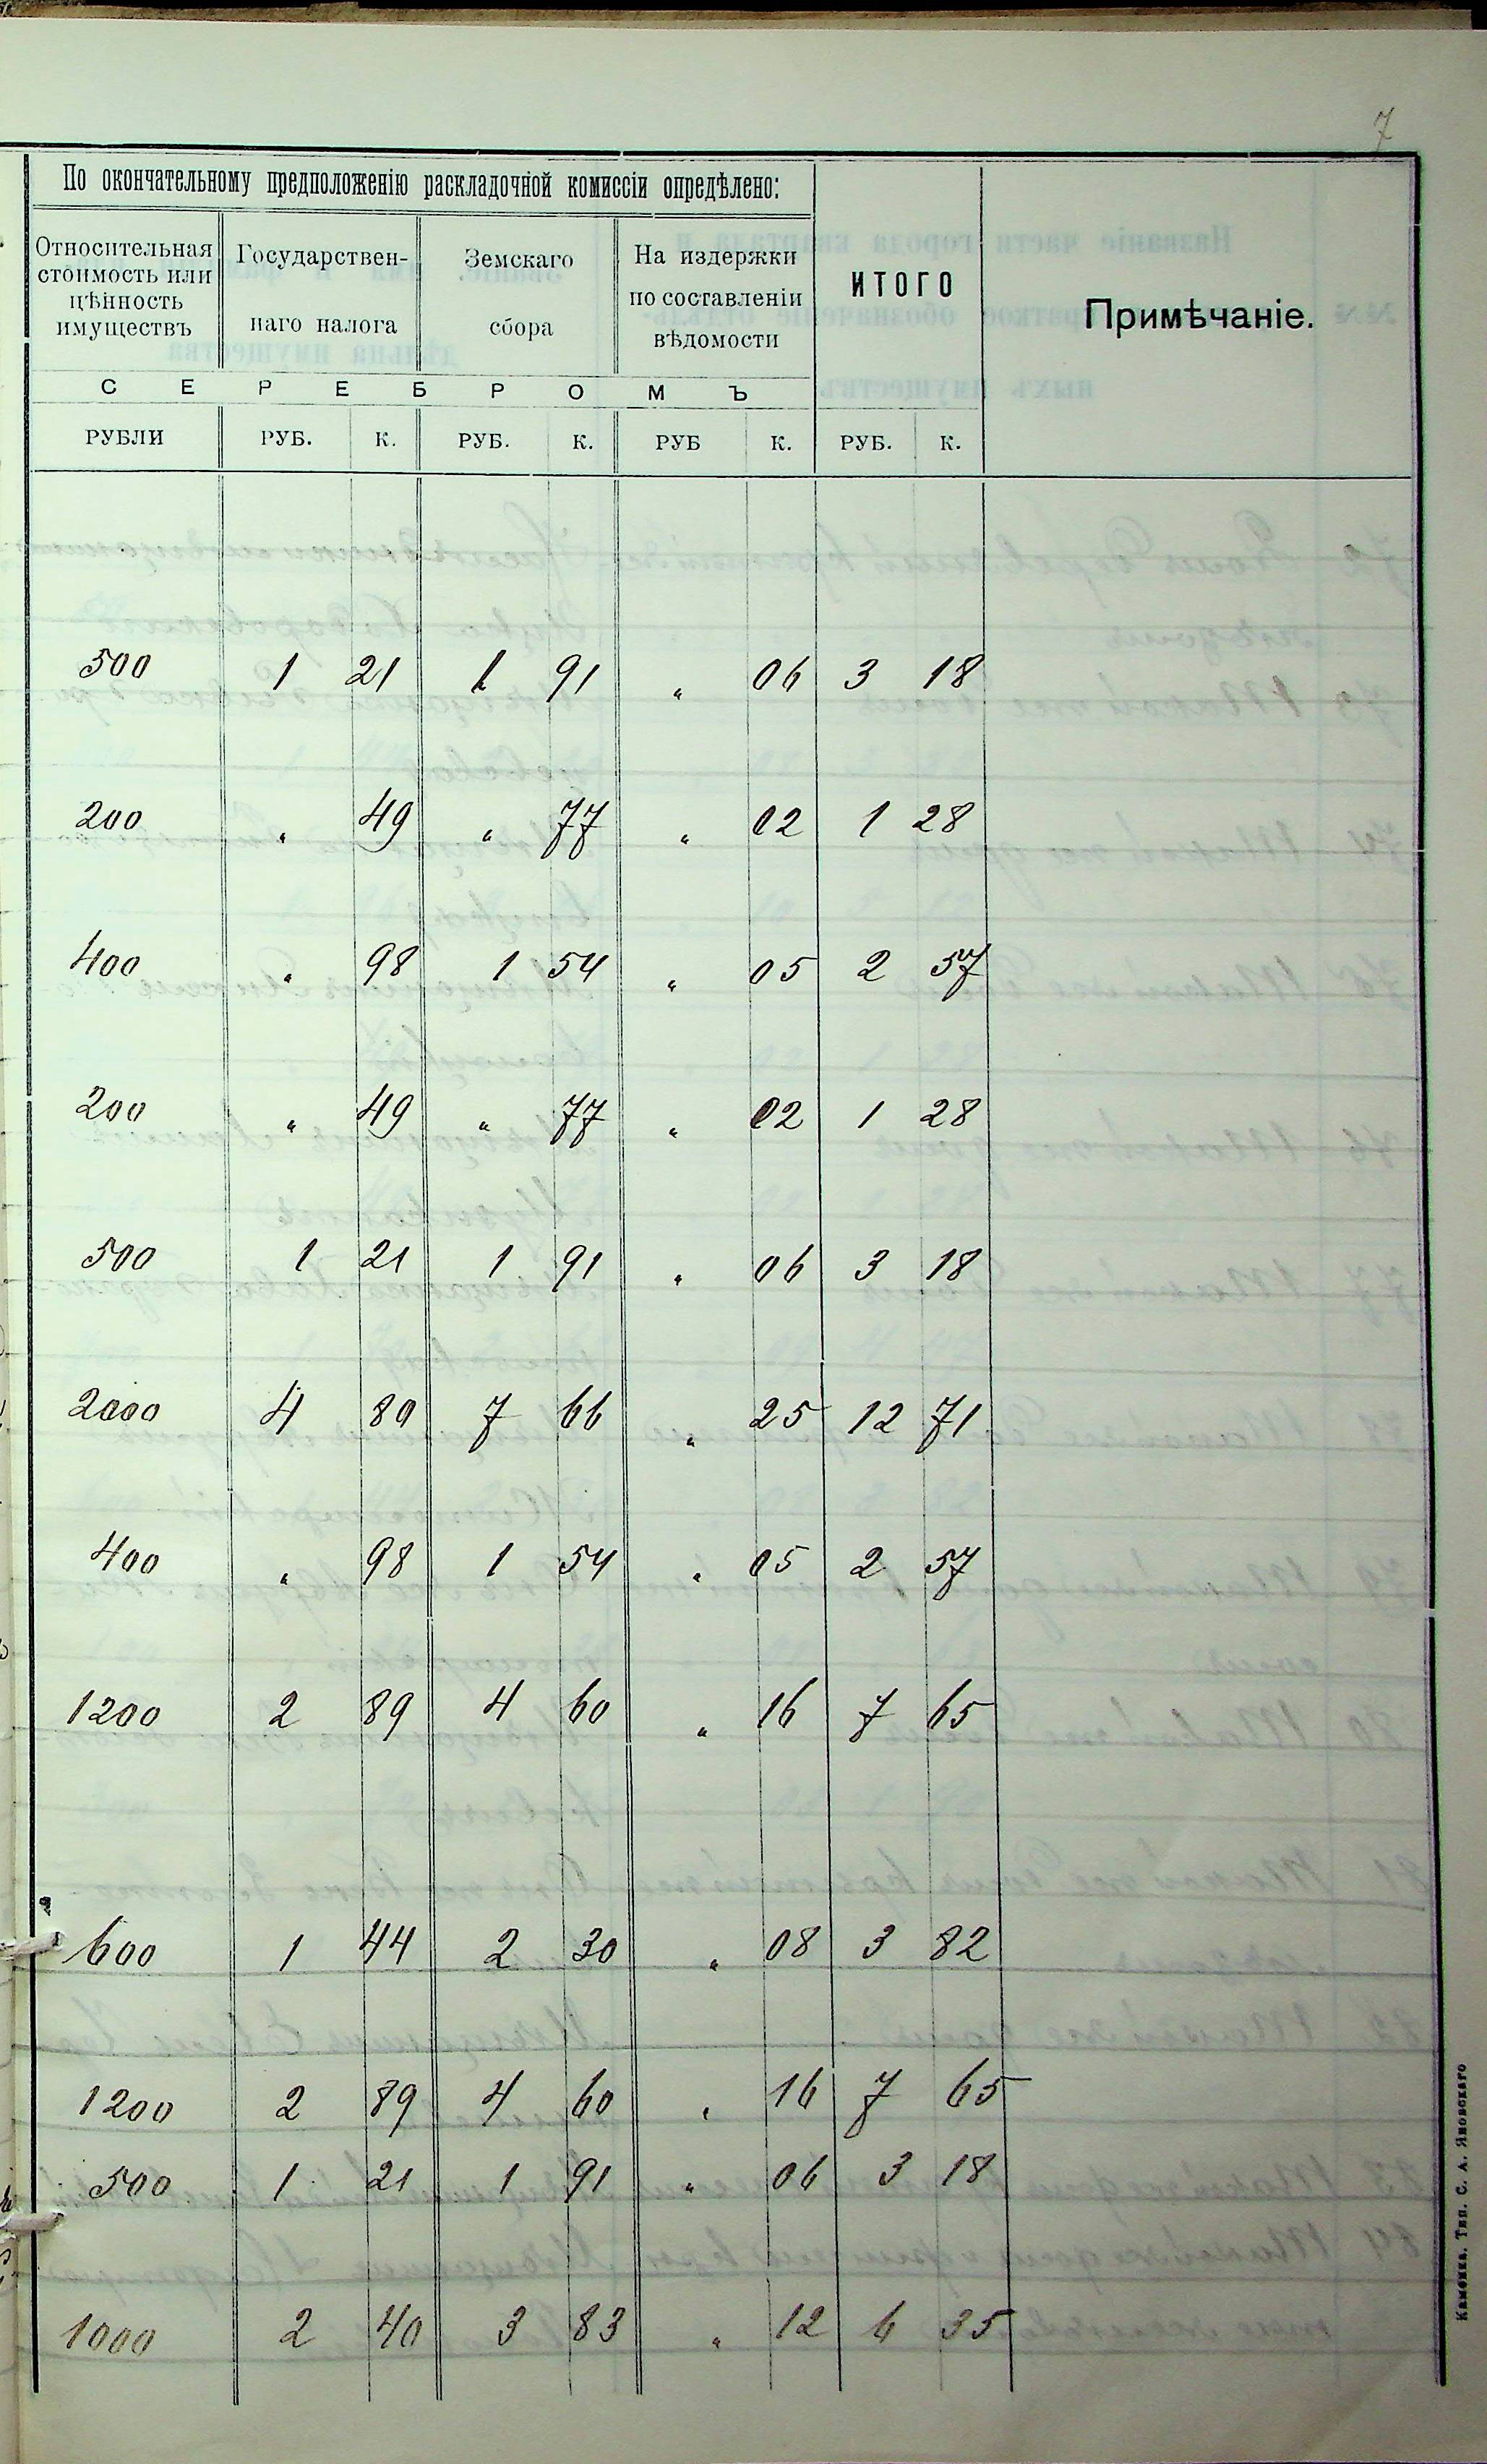 7
По окончательному предположенію раскладочной комиссіи опредѣлено:
Относительная стоимость или цѣнность имуществъ
Государствен-наго налога
Земскаго сбора
На издержки по составленіи вѣдомости
ИТОГО
Примѣчаніе.
СЕРЕБРОМЪ
РУБЛИ РУБ. К. РУБ. К. РУБ К. РУБ. К.
500 1 21 1 91 " 06 3 18
200 " 49 " 77 " 02 1 28
400 " 98 1 54 " 05 2 57
200 " 49 " 77 " 02 1 28
500 1 21 1 91 " 06 3 18
2000 4 80 7 66 " 25 12 71
400 " 98 1 54 " 05 2 57
1200 2 89 4 60 " 16 7 65
600 1 44 2 30 " 08 3 82
1200 2 89 4 60 " 16 7 65
500 1 21 1 91 " 06 3 18
1000 2 40 3 83 " 12 6 35
Каменка. Тип. С. А. Яновскаго